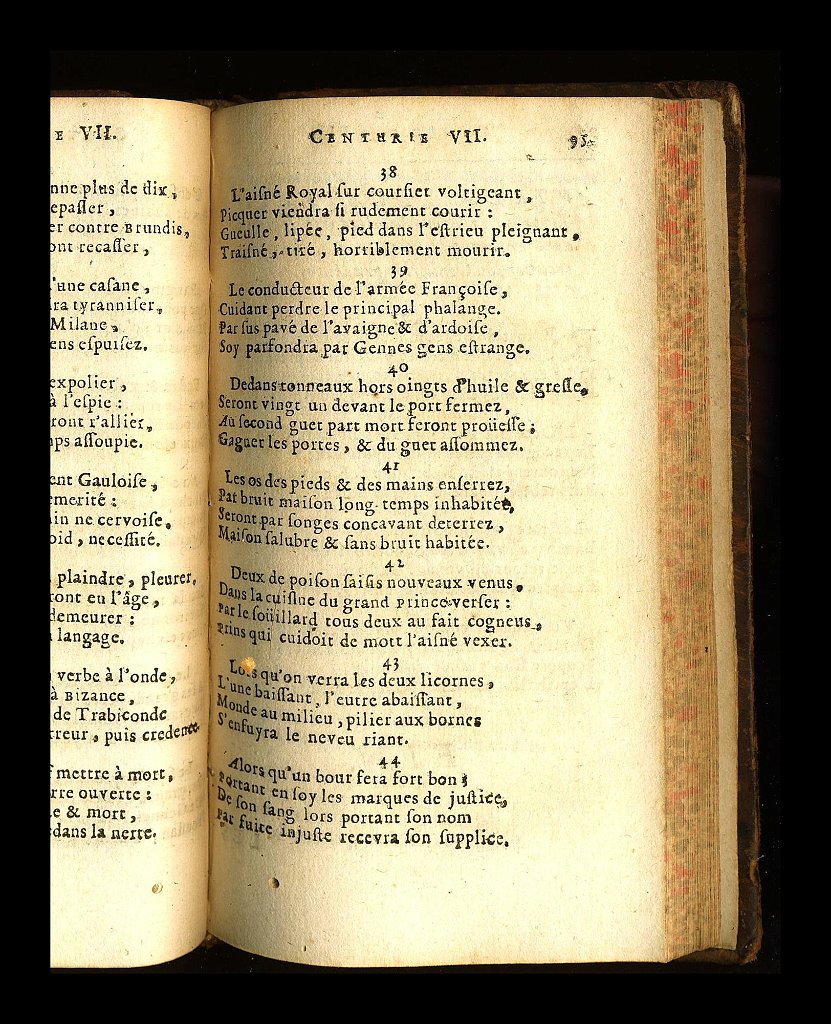 E VII.
nne plus de dix,
epaſſer,
er contre Brundis,
ont recaſſer,
'une caſane,
ra tyranniſer,
Milane,
ens eſpuiſez.
expolier,
à l'eſpie :
ront r'allier,
ps aſſoupie.
ent Gauloiſe,
emerité :
in ne cervoiſe,
oid, neceſſité.
plaindre, pleurer,
ront en l'âge,
demeurer :
langage.
verbe à l'onde,
à Bizance,
de Trabiconde
reur, puis credence.
mettre à mort,
rre ouverte :
e & mort,
dans la nerte.
CENTURIE VII. 95
38
L'aiſné Royal ſur courſier voltigeant,
Picquer viendra ſi rudement courir :
Gueulle, lipée, pied dans l'eſtrieu pleignant,
Traiſné, tiré, horriblement mourir.
39
Le conducteur de l'armée Françoiſe,
Cuidant perdre le principal phalange.
Par ſus pavé de l'avaigne & d'ardoiſe,
Soy parfondra par Gennes gens eſtrange.
40
Dedans tonneaux hors oingts d'huile & greſſe,
Seront vingt un devant le port fermez,
Au ſecond guet part mort feront proüeſſe ;
Gagner les portes, & du guet aſſommez.
41
Les os des pieds & des mains enſerrez,
Par bruit maiſon long temps inhabitée,
Seront par ſonges concavant deterrez,
Maiſon ſalubre & ſans bruit habitée.
42
Deux de poiſon ſaiſis nouveaux venus,
Dans la cuiſine du grand Prince verſer :
Par le ſoüillard tous deux au fait cogneus,
Prins qui cuidoit de mort l'aiſné vexer.
43
Lors qu'on verra les deux licornes,
L'une baiſſant, l'eutre abaiſſant,
Monde au milieu, pilier aux bornes
S'enfuyra le neveu riant.
44
Alors qu'un bour fera fort bon ;
Portant en ſoy les marques de juſtice,
De ſon ſang lors portant ſon nom
Par fuite injuſte recevra ſon ſupplice.